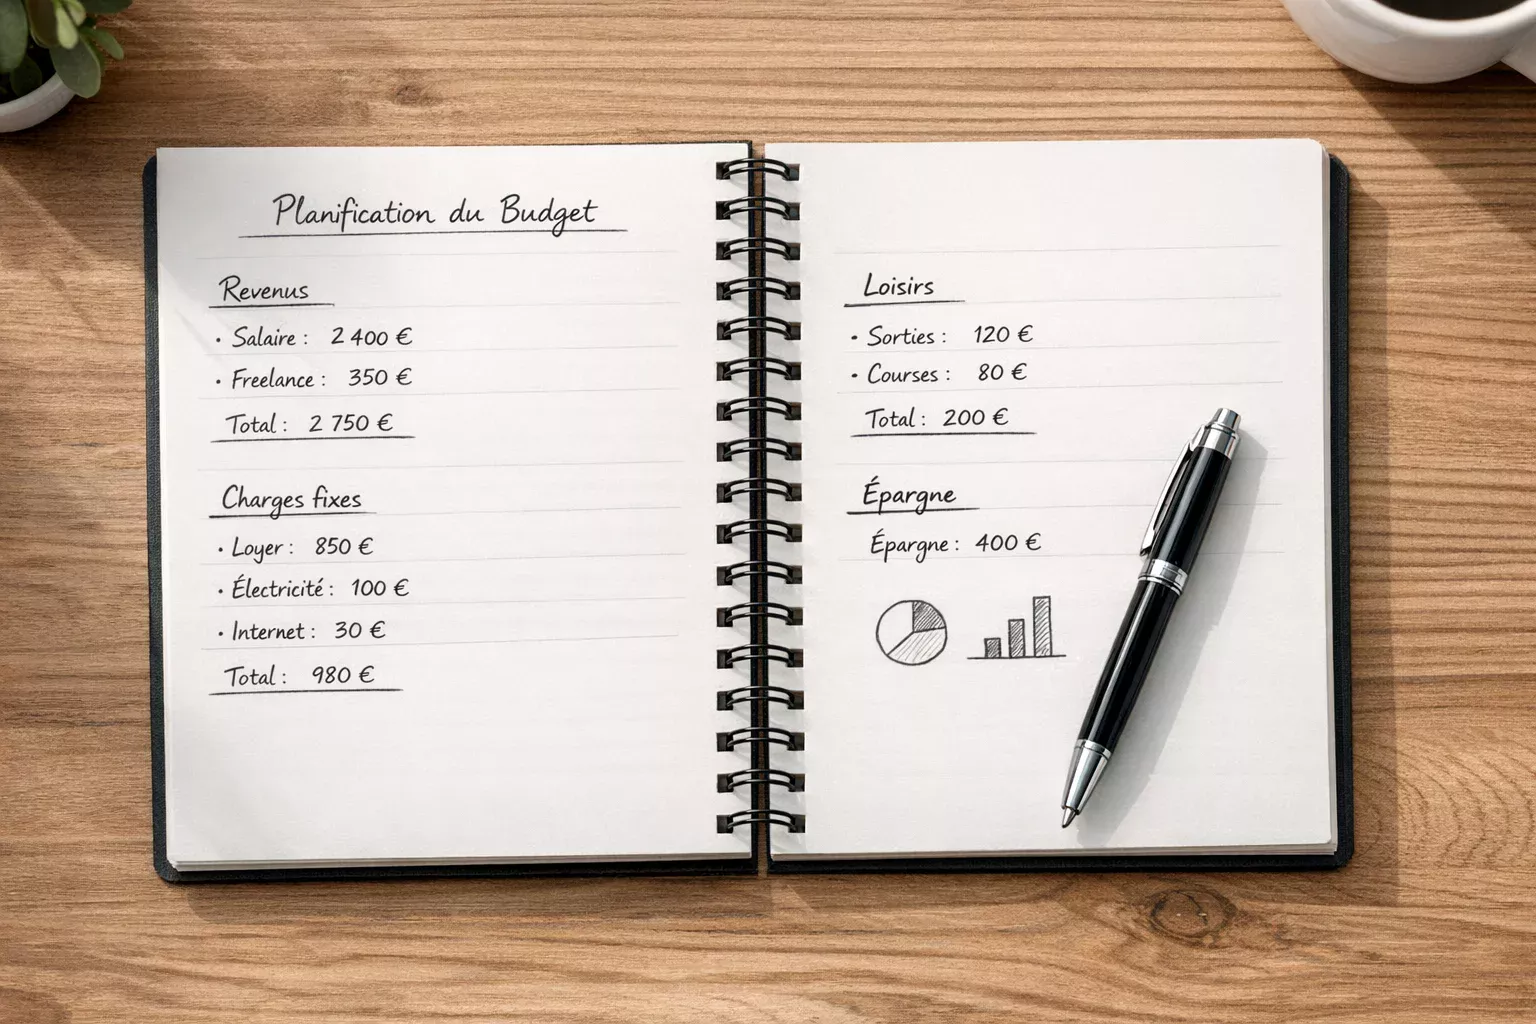 Planification du Budget
Revenus
• Salaire : 2 400 €
• Freelance : 350 €
Total : 2 750 €
Charges fixes
• Loyer : 850 €
• Électricité : 100 €
• Internet : 30 €
Total : 980 €
Loisirs
• Sorties : 120 €
• Courses : 80 €
Total : 200 €
Épargne
Épargne : 400 €